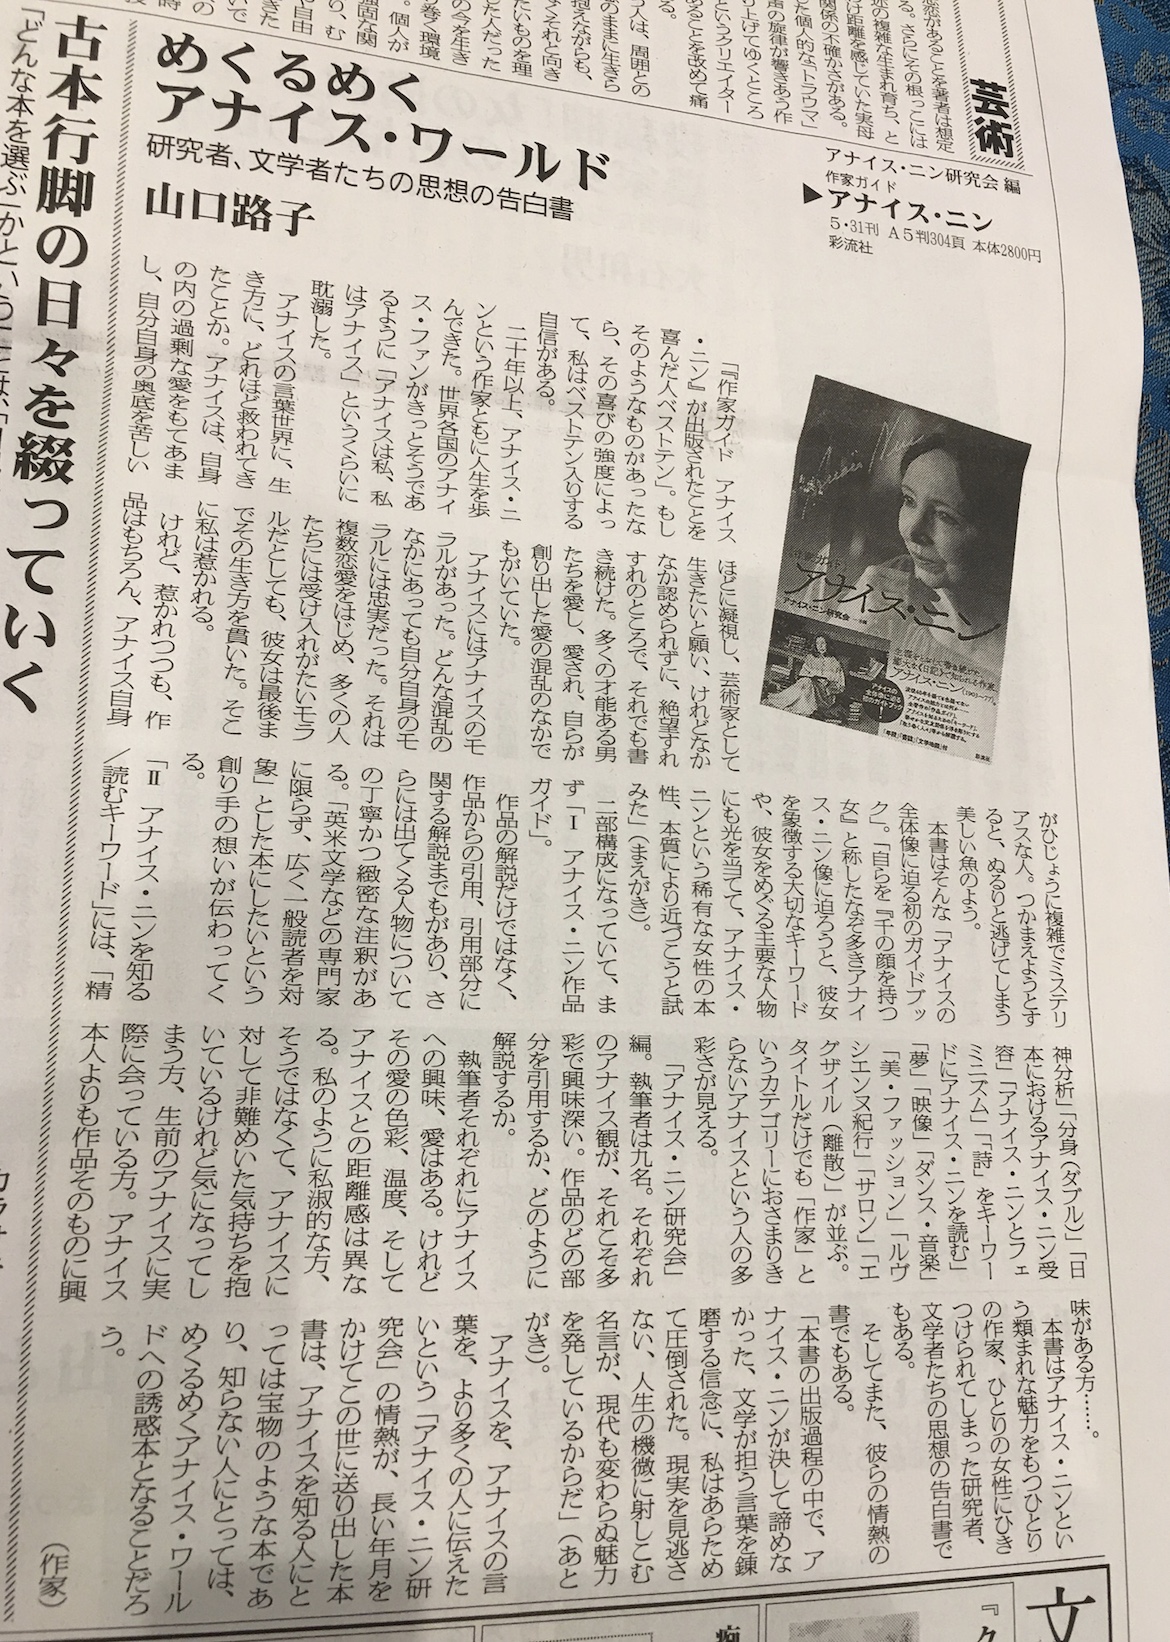 芸術
アナイス・ニン研究会 編
作家ガイド
▶アナイス・ニン
5・31刊 A5判304頁 本体2800円
彩流社
めくるめく
アナイス・ワールド
研究者、文学者たちの思想の告白書
山口路子
『作家ガイド アナイス
・ニン』が出版されたことを
喜んだ人ベストテン」。もし
そのようなものがあったな
ら、その喜びの強度によっ
て、私はベストテン入りする
自信がある。
二十年以上、アナイス・ニ
ンという作家とともに人生を歩
んできた。世界各国のアナイ
ス・ファンがきっとそうであ
るように「アナイスは私、私
はアナイス」というくらいに
耽溺した。
アナイスの言葉世界に、生
き方に、どれほど救われてき
たことか。アナイスは、自身
の内の過剰な愛をもてあま
し、自分自身の奥底を苦しい
ほどに凝視し、芸術家として
生きたいと願い、けれどなか
なか認められずに、絶望すれ
すれのところで、それでも書
き続けた。多くの才能ある男
たちを愛し、愛され、自らが
創り出した愛の混乱のなかで
もがいていた。
アナイスにはアナイスのモ
ラルがあった。どんな混乱の
なかにあっても自分自身のモ
ラルには忠実だった。それは
複数恋愛をはじめ、多くの人
たちには受け入れがたいモラ
ルだとしても、彼女は最後ま
でその生き方を貫いた。そこ
に私は惹かれる。
けれど、惹かれつつも、作
品はもちろん、アナイス自身
がひじょうに複雑でミステリ
アスな人。つかまえようとす
ると、ぬるりと逃げてしまう
美しい魚のよう。
本書はそんな「アナイスの
全体像に迫る初のガイドブッ
ク」。「自らを『千の顔を持つ
女』と称したなぞ多きアナイ
ス・ニン像に迫ろうと、彼女
を象徴する大切なキーワード
や、彼女をめぐる主要な人物
にも光を当てて、アナイス・
ニンという稀有な女性の本
性、本質により近づこうと試
みた」(まえがき)。
二部構成になっていて、ま
ず「Ⅰ アナイス・ニン作品
ガイド」。
作品の解説だけではなく、
作品からの引用、引用部分に
関する解説までもがあり、さ
らには出てくる人物について
の丁寧かつ緻密な注釈があ
る。「英米文学などの専門家
に限らず、広く一般読者を対
象」とした本にしたいという
創り手の想いが伝わってく
る。
「Ⅱ アナイス・ニンを知る
／読むキーワード」には、「精
神分析」「分身(ダブル)」「日
本におけるアナイス・ニン受
容」「アナイス・ニンとフェ
ミニズム」「詩」をキーワー
ドにアナイス・ニンを読む」
「夢」「映像」「ダンス・音楽」
「美・ファッション」「ルヴ
シエンヌ紀行」「サロン」「エ
グザイル(離散)」が並ぶ。
タイトルだけでも「作家」と
いうカテゴリーにおさまりき
らないアナイスという人の多
彩さが見える。
「アナイス・ニン研究会」
編。執筆者は九名。それぞれ
のアナイス観が、それこそ多
彩で興味深い。作品のどの部
分を引用するか、どのように
解説するか。
執筆者それぞれにアナイス
への興味、愛はある。けれど
その愛の色彩、温度、そして
アナイスとの距離感は異な
る。私のように私淑的な方、
そうではなくて、アナイスに
対して非難めいた気持ちを抱
いているけれど気になってし
まう方、生前のアナイスに実
際に会っている方。アナイス
本人よりも作品そのものに興
味がある方……。
本書はアナイス・ニンとい
う類まれな魅力をもつひとり
の作家、ひとりの女性にひき
つけられてしまった研究者、
文学者たちの思想の告白書で
もある。
そしてまた、彼らの情熱の
書でもある。
「本書の出版過程の中で、ア
ナイス・ニンが決して諦めな
かった、文学が担う言葉を錬
磨する信念に、私はあらため
て圧倒された。現実を見逃さ
ない、人生の機微に射しこむ
名言が、現代も変わらぬ魅力
を発しているからだ」(あと
がき)。
アナイスを、アナイスの言
葉を、より多くの人に伝えた
いという「アナイス・ニン研
究会」の情熱が、長い年月を
かけてこの世に送り出した本
書は、アナイスを知る人にと
っては宝物のような本であ
り、知らない人にとっては、
めくるめくアナイス・ワール
ドへの誘惑本となることだろ
う。
(作家)
古本行脚の日々を綴っていく